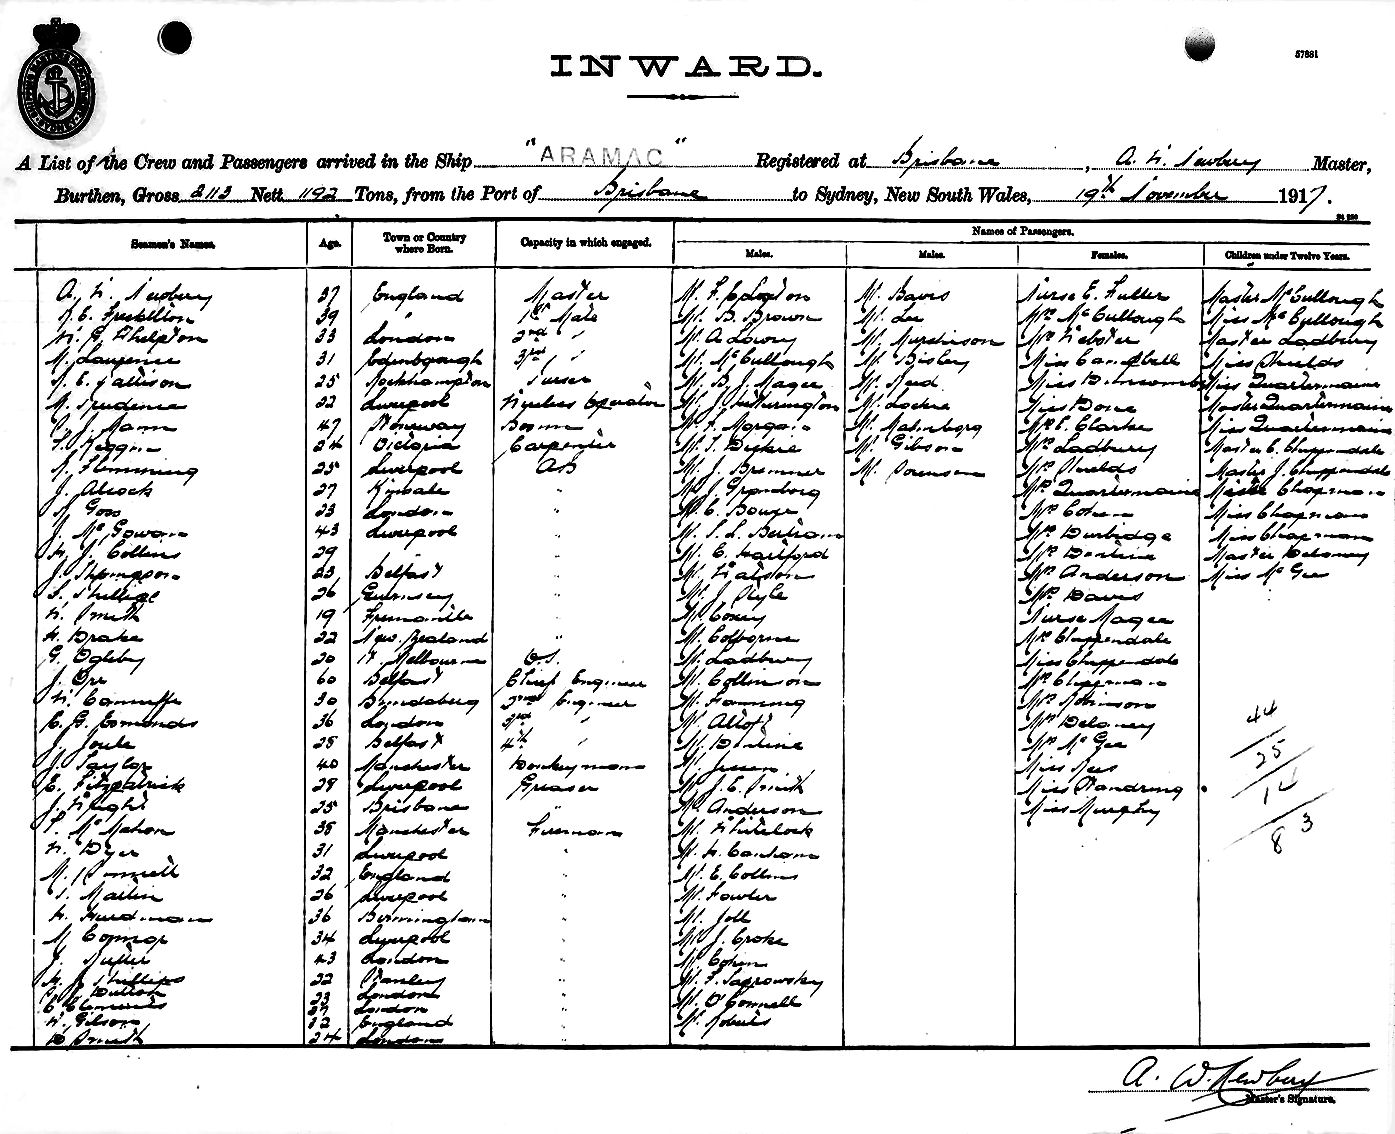 INWARD.
57881
SYDNEY
A List of the Crew and Passengers arrived in the Ship "ARAMAC" Registered at Brisbane, A. W. Newbury Master,
Burthen, Gross 2113 Nett 1192 Tons, from the Port of Brisbane to Sydney, New South Wales, 19th November 1917.
Seamen's Names. Age. Town or Country where Born. Capacity in which engaged. Names of Passengers.
Males. Males. Females. Children under Twelve Years.
A. W. Newbury 37 England Master Mr. F. Mr. Davis Nurse E. Fuller Master McCullough
39 " 1st Mate Mr. B. Brown Mr. Lee Mrs McCullough Miss McCullough
W. G. 33 London 2nd " Mr. A. Lowry Mr. Murchison Mrs Webster Master Ladbury
M. Laurence 31 Edinborough 3rd " Mr. McCullough Mr. Bisley Miss Campbell Miss Shields
25 Rockhampton Purser Mr. B. J. Magee Mr. Reed Miss Duncombe Miss Quartermaine
M. Prudence 22 Liverpool Wireless Operator Mr. J. Mr. Lockie Miss Bone Master Quartermaine
J. Mann 47 Norway Bosun Mr. F. Morgan Mr. Malmborg Mrs E. Clarke Miss Quartermaine
24 Victoria Carpenter Mr. T. Mr. Gibson Mrs Ladbury Master E. Chippendale
Flemming 25 Liverpool AB Mr. J. Bremner Mr. Sorensen Mrs Shields Master J. Chippendale
J. Alcock 27 Kinsale " Mr. J. Granberg Mrs Quartermaine Master Chapman
Goss 23 London " Mr. C. Mrs Cohen Miss Chapman
J. McGowan 43 Liverpool Mr. S. L. Mrs Durbidge Miss Chapman
W. J. Collins 29 " Mr. E. Hartford Mrs Master Delaney
J. Thompson 23 Belfast " Mr. Watson Mrs Anderson Miss McGee
S. 26 Guernsey " Mr. J. Mrs Davis
W. Smith 19 Fremantle Mr. Nurse Magee
H. Drake 22 New Zealand " Mr. Colborne Mrs Chippendale
G. Ogleby 20 Melbourne O.S. Mr. Ladbury Miss Chippendale
J. Orr 60 Belfast Chief Engineer Mr. Collinson Mrs Chapman
30 Bundaberg 2nd Engineer Mr. Fanning Mrs Robinson
E. G. Edmonds 36 London 3rd " Mr. Mrs Delaney
J. 25 Belfast 4th " Mr. Mrs McGee
J. Taylor 40 Manchester Donkeyman Mr. Jensen Miss Rees
E. Fitzpatrick 29 Liverpool Greaser Mr. J. E. Smith Miss Standring
J. Wright 25 Brisbane " Mr. Anderson Miss Murphy
McMahon 35 Manchester Fireman Mr. Whitelock
W. Dyer 31 Liverpool " Mr. H.
M. 32 England " Mr. E. Collins
Martin 26 Liverpool " Mr. Fowler
H. Hurdman 36 Birmingham " Mr. Joll
M. Connor 34 Liverpool " Mr. J. Croke
J. 43 London " Mr. Cohen
Phillips 22 Stanley " Mr. F.
23 London " Mr. O'Connell
Clements 27 London " Mr. Roberts
W. Gibson 32 England
Smith 24 London
44
25
14
83
A. W. Newbury
Master's Signature.